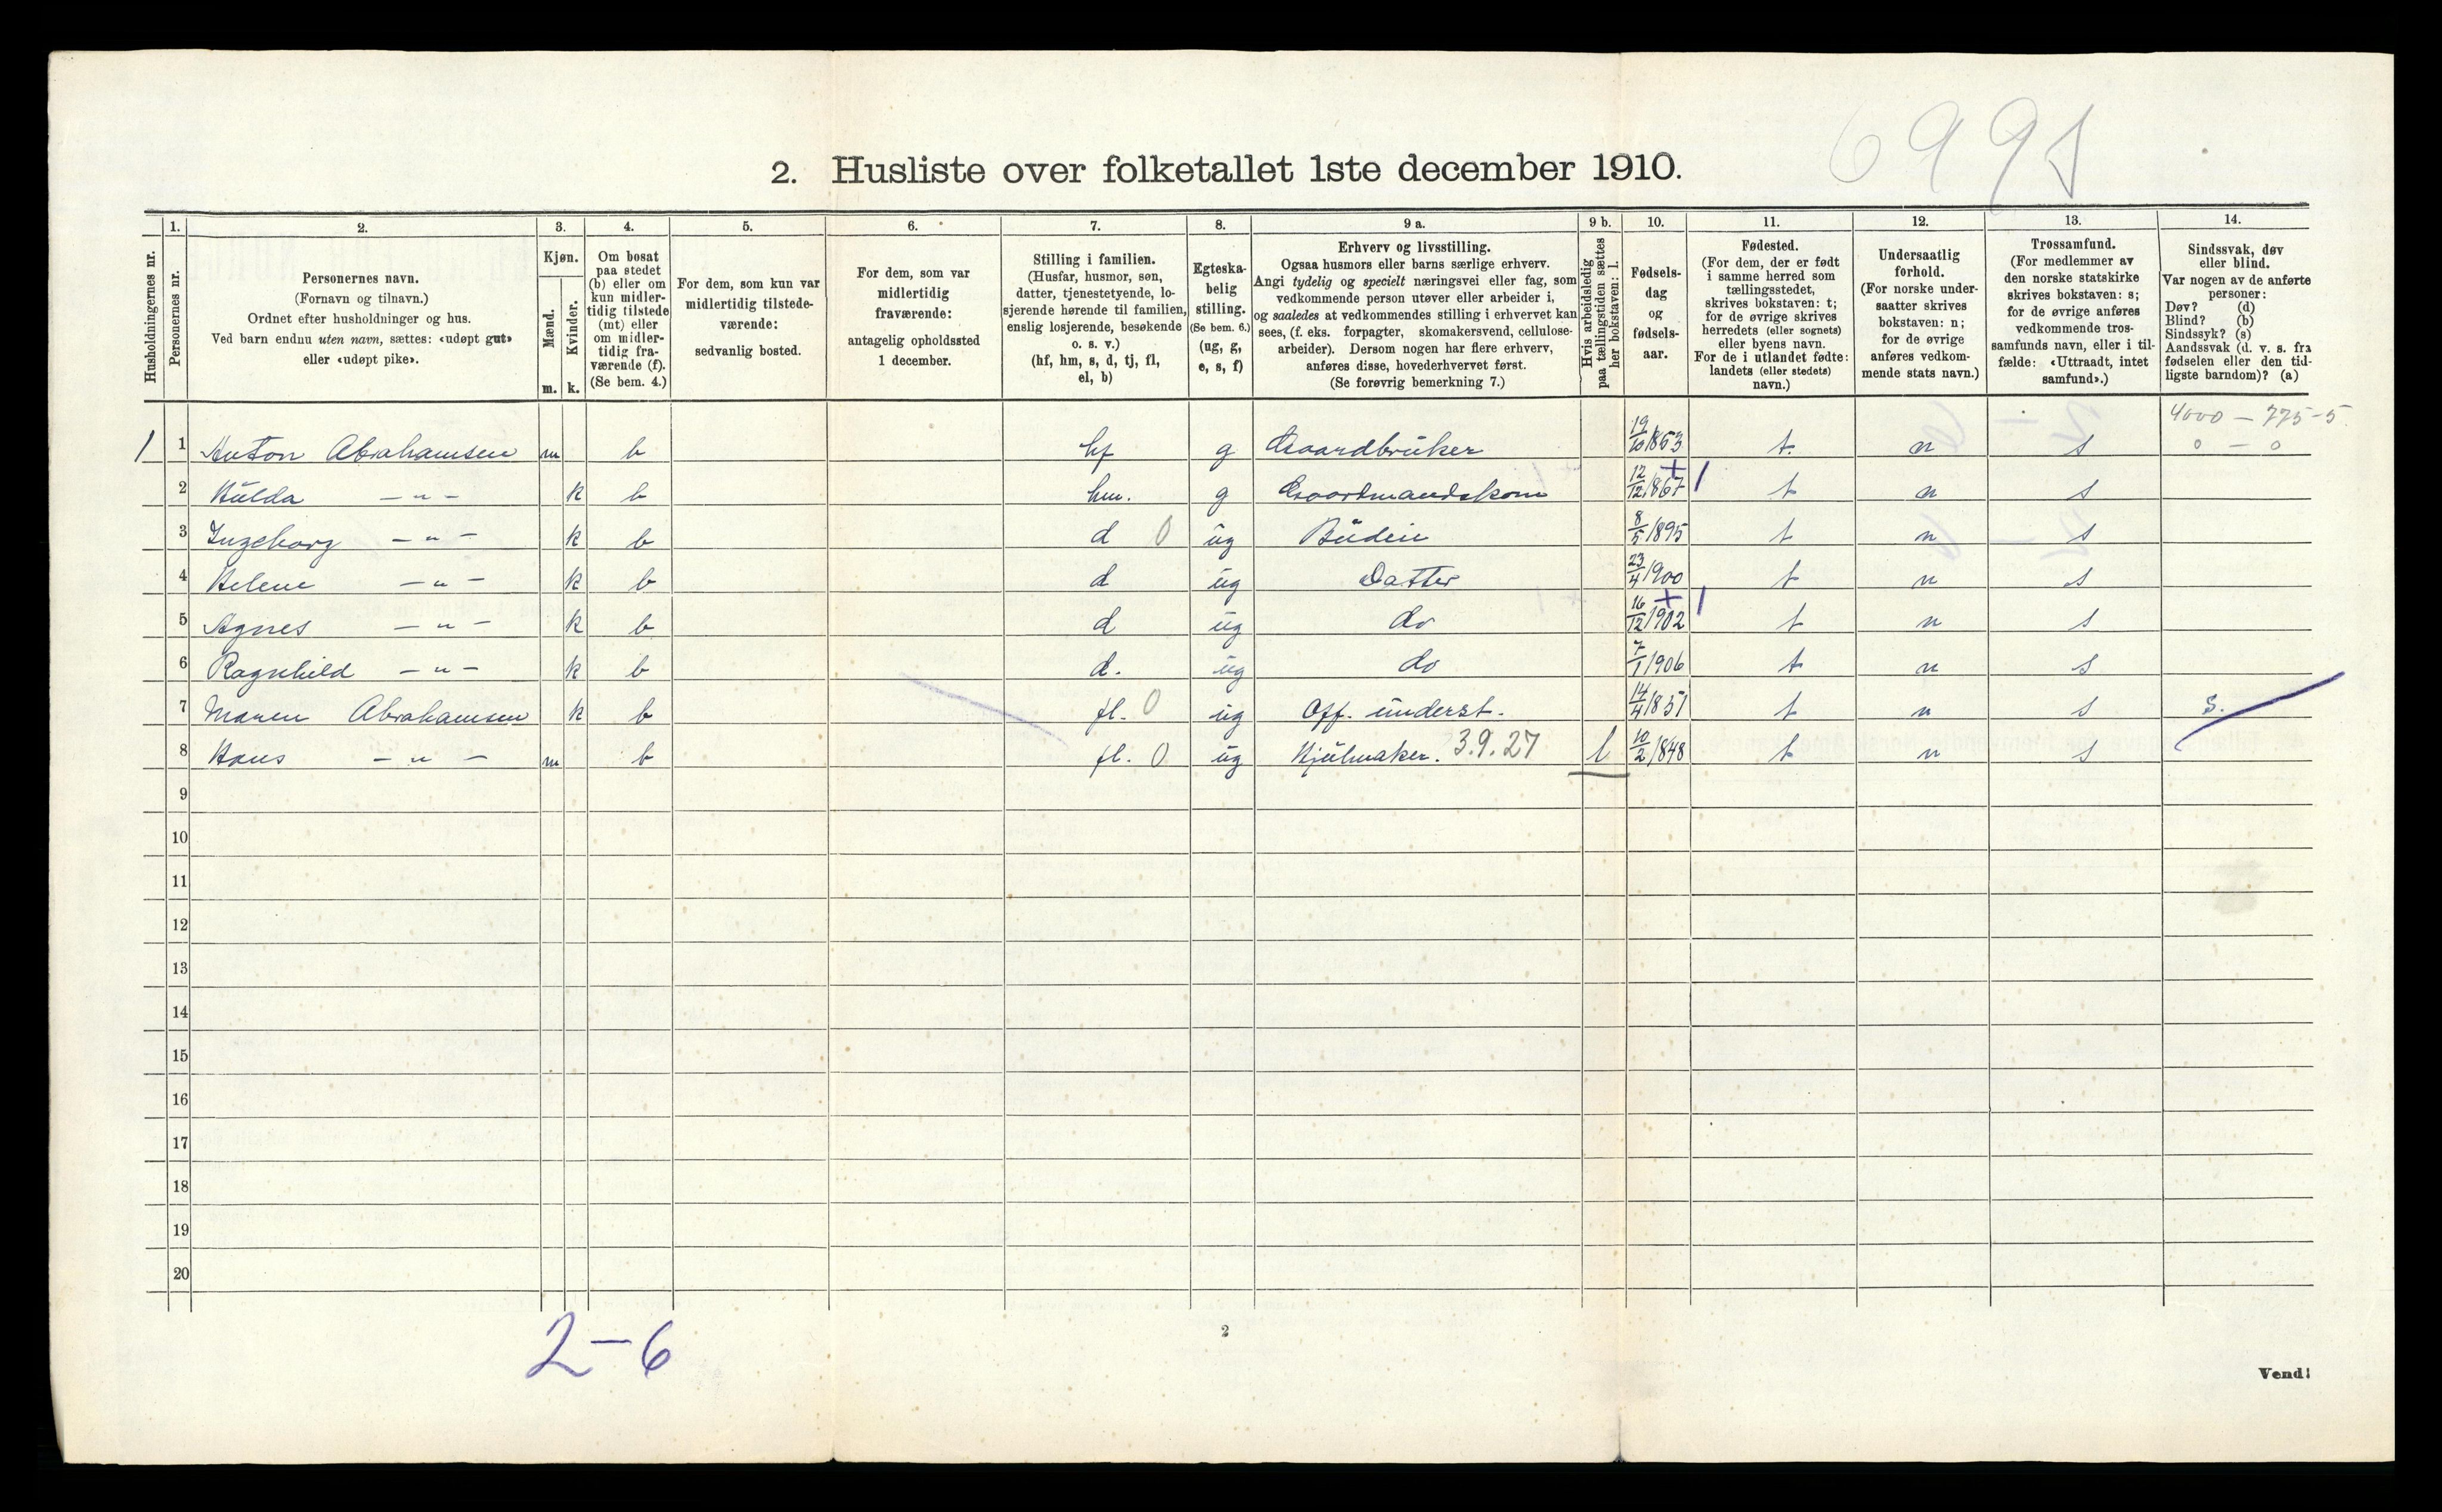 6991
2. Husliste over folketallet 1ste december 1910.
Husholdningernes nr.
1. Personernes nr.
2. Personernes navn.
(Fornavn og tilnavn.)
Ordnet efter husholdninger og hus.
Ved barn endnu uten navn, sættes: «udøpt gut»
eller «udøpt pike».
3. Kjøn.
Mænd. m.
Kvinder. k.
4. Om bosat
paa stedet
(b) eller om
kun midler-
tidig tilstede
(mt) eller
om midler-
tidig fra-
værende (f).
(Se bem. 4.)
5. For dem, som kun var
midlertidig tilstede-
værende:
sedvanlig bosted.
6. For dem, som var
midlertidig
fraværende:
antagelig opholdssted
1 december.
7. Stilling i familien.
(Husfar, husmor, søn,
datter, tjenestetyende, lo-
sjerende hørende til familien,
enslig losjerende, besøkende
o. s. v.)
(hf, hm, s, d, tj, fl,
el, b)
8. Egteska-
belig
stilling.
(Se bem. 6.)
(ug, g,
e, s, f)
9 a. Erhverv og livsstilling.
Ogsaa husmors eller barns særlige erhverv.
Angi tydelig og specielt næringsvei eller fag, som
vedkommende person utøver eller arbeider i,
og saaledes at vedkommendes stilling i erhvervet kan
sees, (f. eks. forpagter, skomakersvend, cellulose-
arbeider). Dersom nogen har flere erhverv,
anføres disse, hovederhvervet først.
(Se forøvrig bemerkning 7.)
9 b. Hvis arbeidsledig
paa tællingstiden sættes
her bokstaven: l.
10. Fødsels-
dag
og
fødsels-
aar.
11. Fødested.
(For dem, der er født
i samme herred som
tællingsstedet,
skrives bokstaven: t;
for de øvrige skrives
herredets (eller sognets)
eller byens navn.
For de i utlandet fødte:
landets (eller stedets)
navn.)
12. Undersaatlig
forhold.
(For norske under-
saatter skrives
bokstaven: n;
for de øvrige
anføres vedkom-
mende stats navn.)
13. Trossamfund.
(For medlemmer av
den norske statskirke
skrives bokstaven: s;
for de øvrige anføres
vedkommende tros-
samfunds navn, eller i til-
fælde: «Uttraadt, intet
samfund».)
14. Sindssvak, døv
eller blind.
Var nogen av de anførte
personer:
Døv? (d)
Blind? (b)
Sindssyk? (s)
Aandssvak (d. v. s. fra
fødselen eller den tid-
ligste barndom)? (a)
4000 – 775-5
1 1 Anton Abrahamsen m b hf g Gaardbruker 19/10 1863 t. n s 0 – 0
2 Hulda – " – k b hm. g Gaardmandskone 12/12 1867 + t n s
3 Ingeborg – " – k b d 0 ug Budeie 8/5 1895 t n s
4 Helene – " – k b d ug Datter 23/4 1900 t n s
5 Agnes – " – k b d ug do 16/12 1902 + t n s
6 Ragnhild – " – k b d. ug do 7/1 1906 t n s
7 Maren Abrahamsen k b fl. 0 ug Off. underst. 14/4 1851 t n s s.
8 Hans – " – m b fl. 0 ug Hjulmaker. 3.9.27 l 10/2 1848 t n s
9
10
11
12
13
14
15
16
17
18
19
20
2–6
2
Vend!